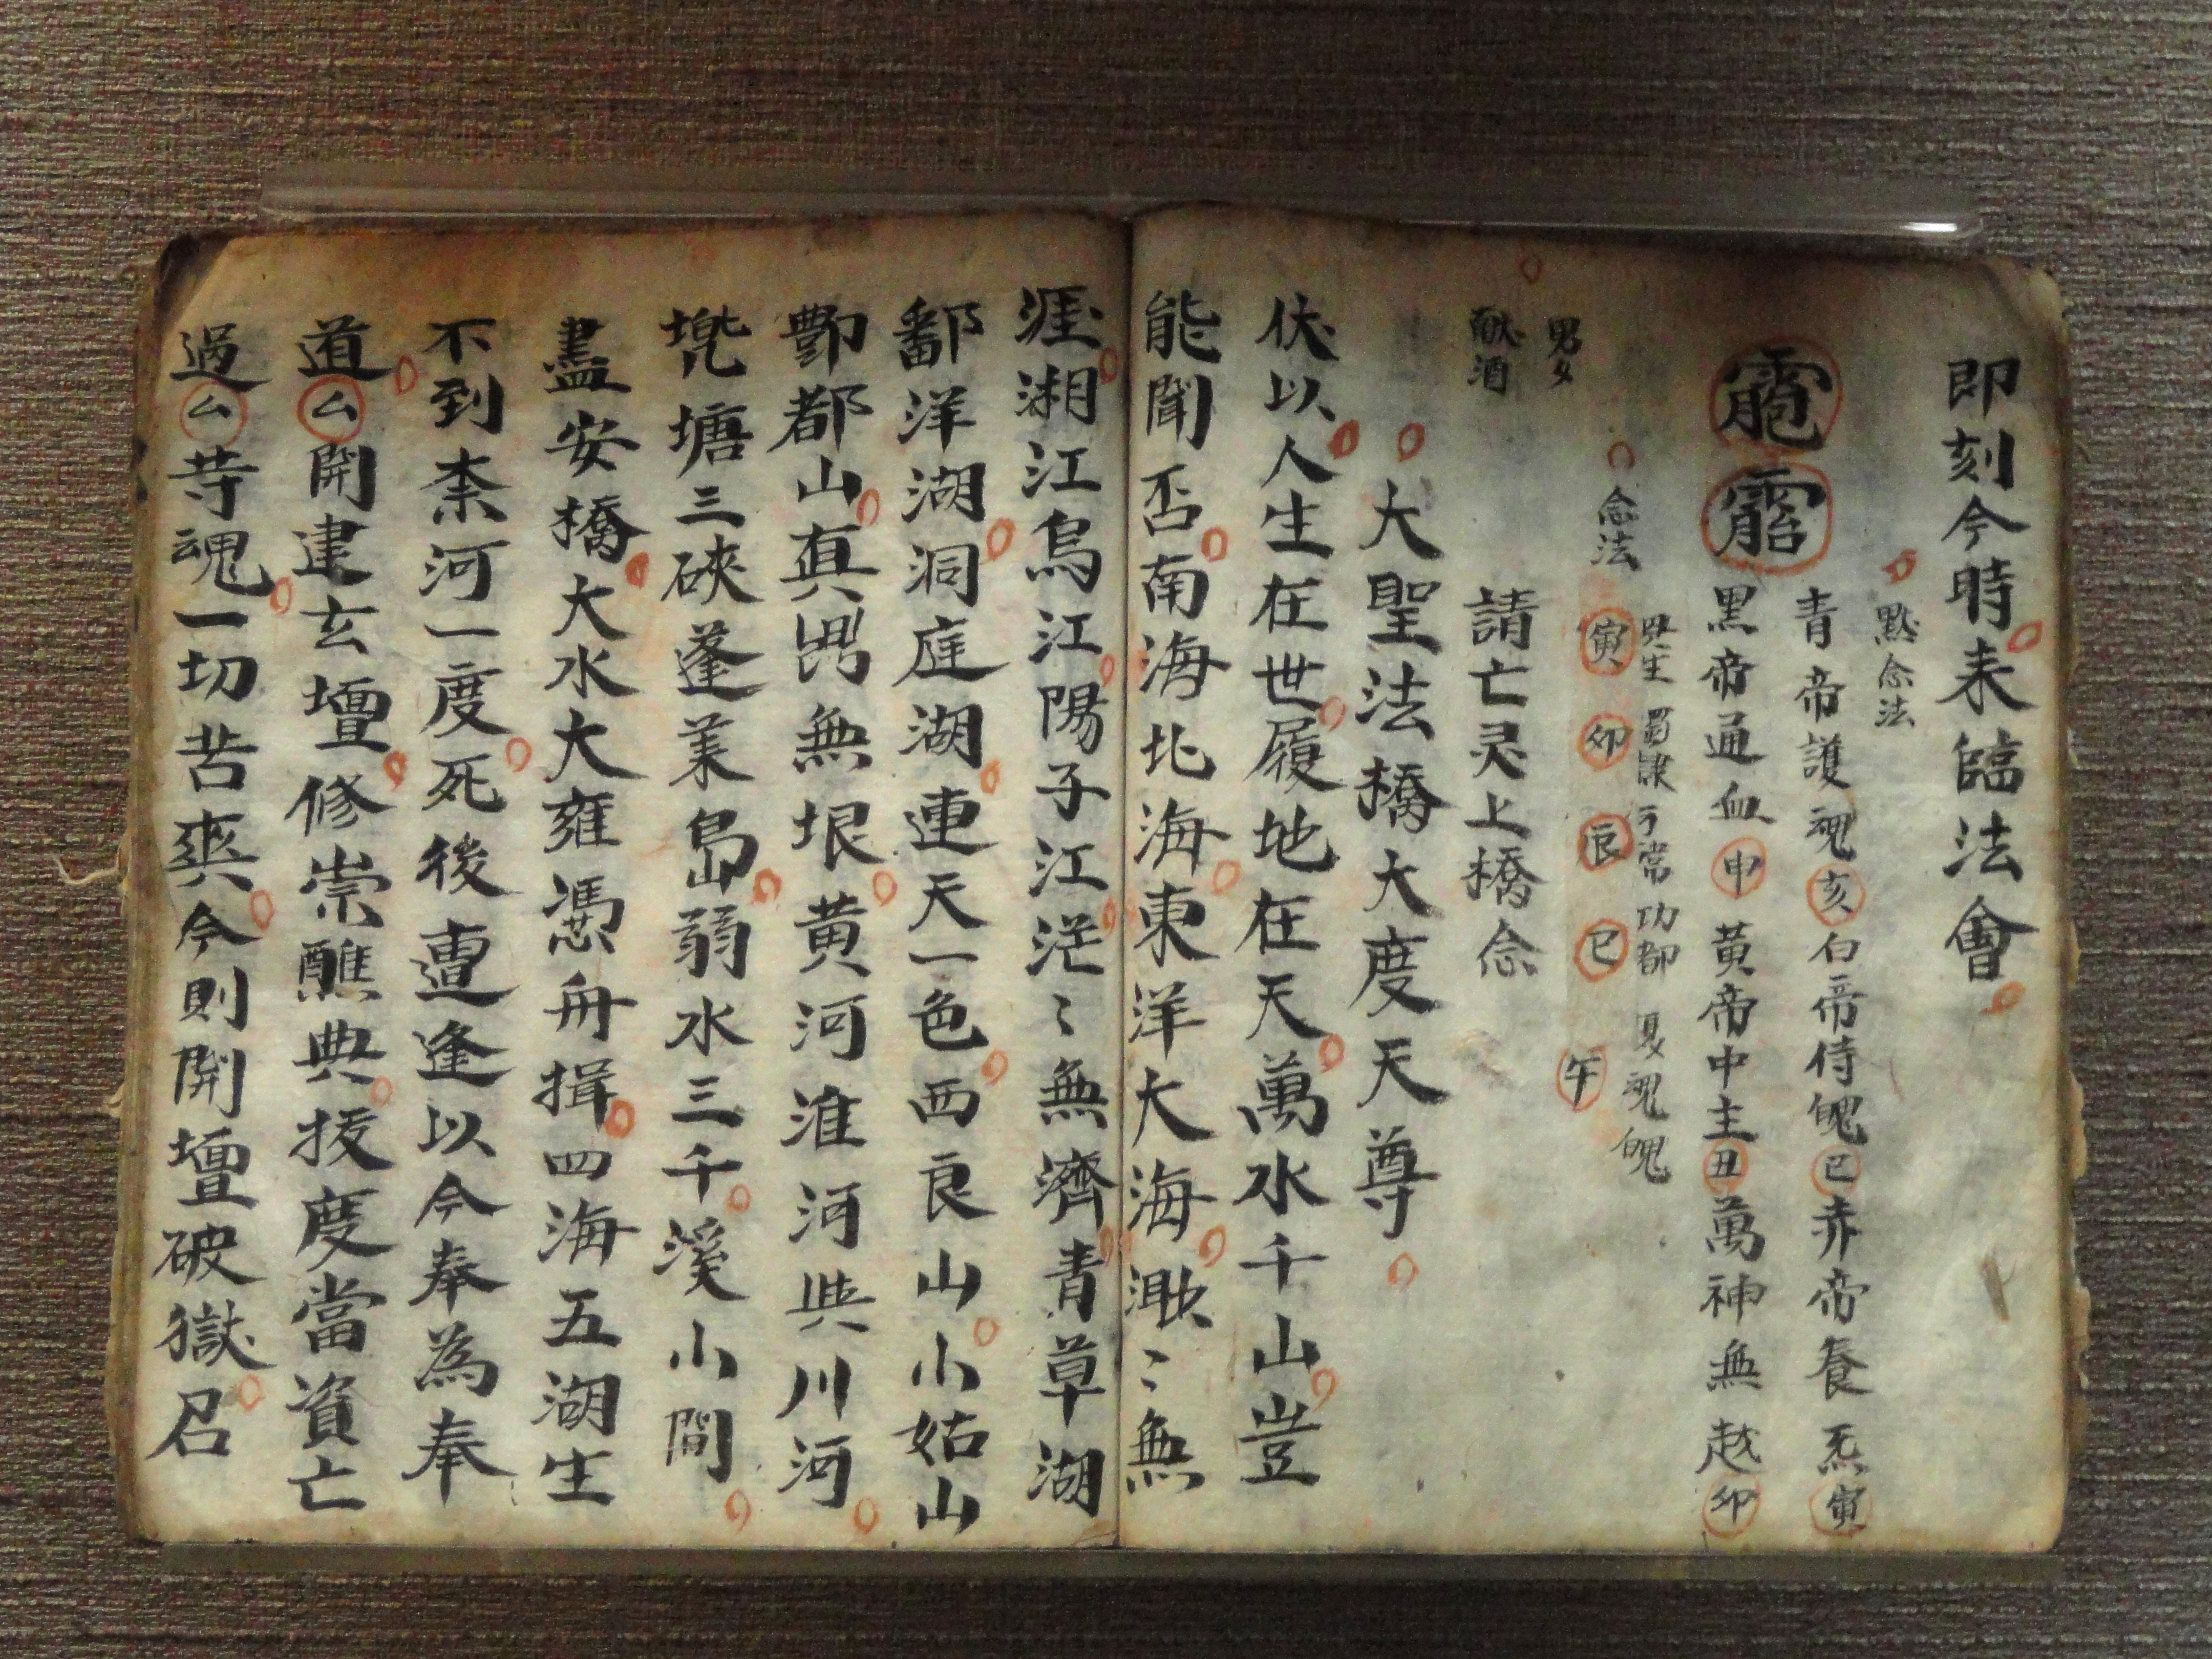 即刻今時来臨法會
黙念法
青帝護魂亥白帝侍魄巳赤帝養炁寅
黑帝通血申黃帝中主丑萬神無越卯
念法
寅卯辰巳午
功都
魂魄
男女
献酒
請亡灵上橋念
大聖法橋大度天尊
伏以人生在世履地在天萬水千山豈
能聞否南海北海東洋大海渺〻無
涯湘江烏江陽子江江茫〻無濟青草湖
鄱洋湖洞庭湖連天一色西良山小姑山
酆都山真無垠黄河淮河與川河
塘三硤蓬莱島弱水三千溪小間
盡安橋大水大雍憑舟揖四海五湖生
不到柰河一度死後遭逢以今奉為奉
道厶開建玄壇修崇醮典拔度當資亡
過厶等魂一切苦爽今則開壇破獄召